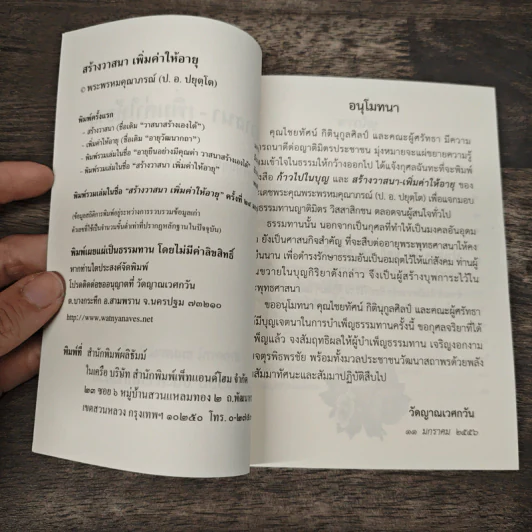 สร้างวาสนา เพิ่มค่าให้อายุ
© พระพรหมคุณาภรณ์ (ป. อ. ปยุตฺโต)
พิมพ์ครั้งแรก
- สร้างวาสนา (ชื่อเดิม “วาสนาสร้างเองได้”)
- เพิ่มค่าให้อายุ (ชื่อเดิม “อายุวัฒนกถา”)
- พิมพ์รวมเล่มในชื่อ “อายุยืนอย่างมีคุณค่า วาสนาสร้างเองได้”
- พิมพ์รวมเล่มในชื่อ “สร้างวาสนา เพิ่มค่าให้อายุ”
พิมพ์รวมเล่มในชื่อ “สร้างวาสนา เพิ่มค่าให้อายุ” ครั้งที่
พิมพ์เผยแผ่เป็นธรรมทาน โดยไม่มีค่าลิขสิทธิ์
หากท่านใดประสงค์จัดพิมพ์
โปรดติดต่อขออนุญาตที่ วัดญาณเวศกวัน
ต.บางกระทึก อ.สามพราน จ.นครปฐม ๗๓๒๑๐
http://www.watnyanaves.net
พิมพ์ที่ สำนักพิมพ์ผลิธัมม์
ในเครือ บริษัท สำนักพิมพ์เพ็ทแอนด์โฮม จำกัด
๒๓ ซอย ๖ หมู่บ้านสวนแหลมทอง ๒ ถ.พัฒนา
เขตสวนหลวง กรุงเทพฯ ๑๐๒๕๐ โทร.
อนุโมทนา
คุณไชยทัศน์ กิตินุกูลศิลป์ และคณะผู้ศรัทธา มีความ
รถนาดีต่อญาติมิตรประชาชน มุ่งหมายจะแผ่ขยายความรู้
มเข้าใจในธรรมให้กว้างออกไป ได้แจ้งกุศลฉันทะที่จะพิมพ์
งสือ ก้าวไปในบุญ และ สร้างวาสนา-เพิ่มค่าให้อายุ ของ
เดชพระคุณพระพรหมคุณาภรณ์ (ป. อ. ปยุตฺโต) เพื่อแจกมอบ
ธรรมทานญาติมิตร วิสสาสิกชน ตลอดจนผู้สนใจทั่วไป
ธรรมทานนั้น นอกจากเป็นกุศลที่ทำให้เป็นมงคลอันอุดม
ยังเป็นศาสนกิจสำคัญ ที่จะสืบต่ออายุพระพุทธศาสนาให้คง
นนาน เพื่อดำรงรักษาธรรมอันเป็นอมฤตไว้ให้แก่สังคม ท่านผู้
ขวายในบุญกิริยาดังกล่าว จึงเป็นผู้สร้างบุพการะไว้ใน
พุทธศาสนา
ขออนุโมทนา คุณไชยทัศน์ กิตินุกูลศิลป์ และคณะผู้ศรัทธา
มีบุญเจตนาในการบำเพ็ญธรรมทานครั้งนี้ ขอกุศลจริยาที่ได้
เพ็ญแล้ว จงสัมฤทธิผลให้ผู้บำเพ็ญธรรมทาน เจริญงอกงาม
จตุรพิธพรชัย พร้อมทั้งมวลประชาชนวัฒนาสถาพรด้วยพลัง
สัมมาทัศนะและสัมมาปฏิบัติสืบไป
วัดญาณเวศกวัน
๑๑ มกราคม ๒๕๕๖